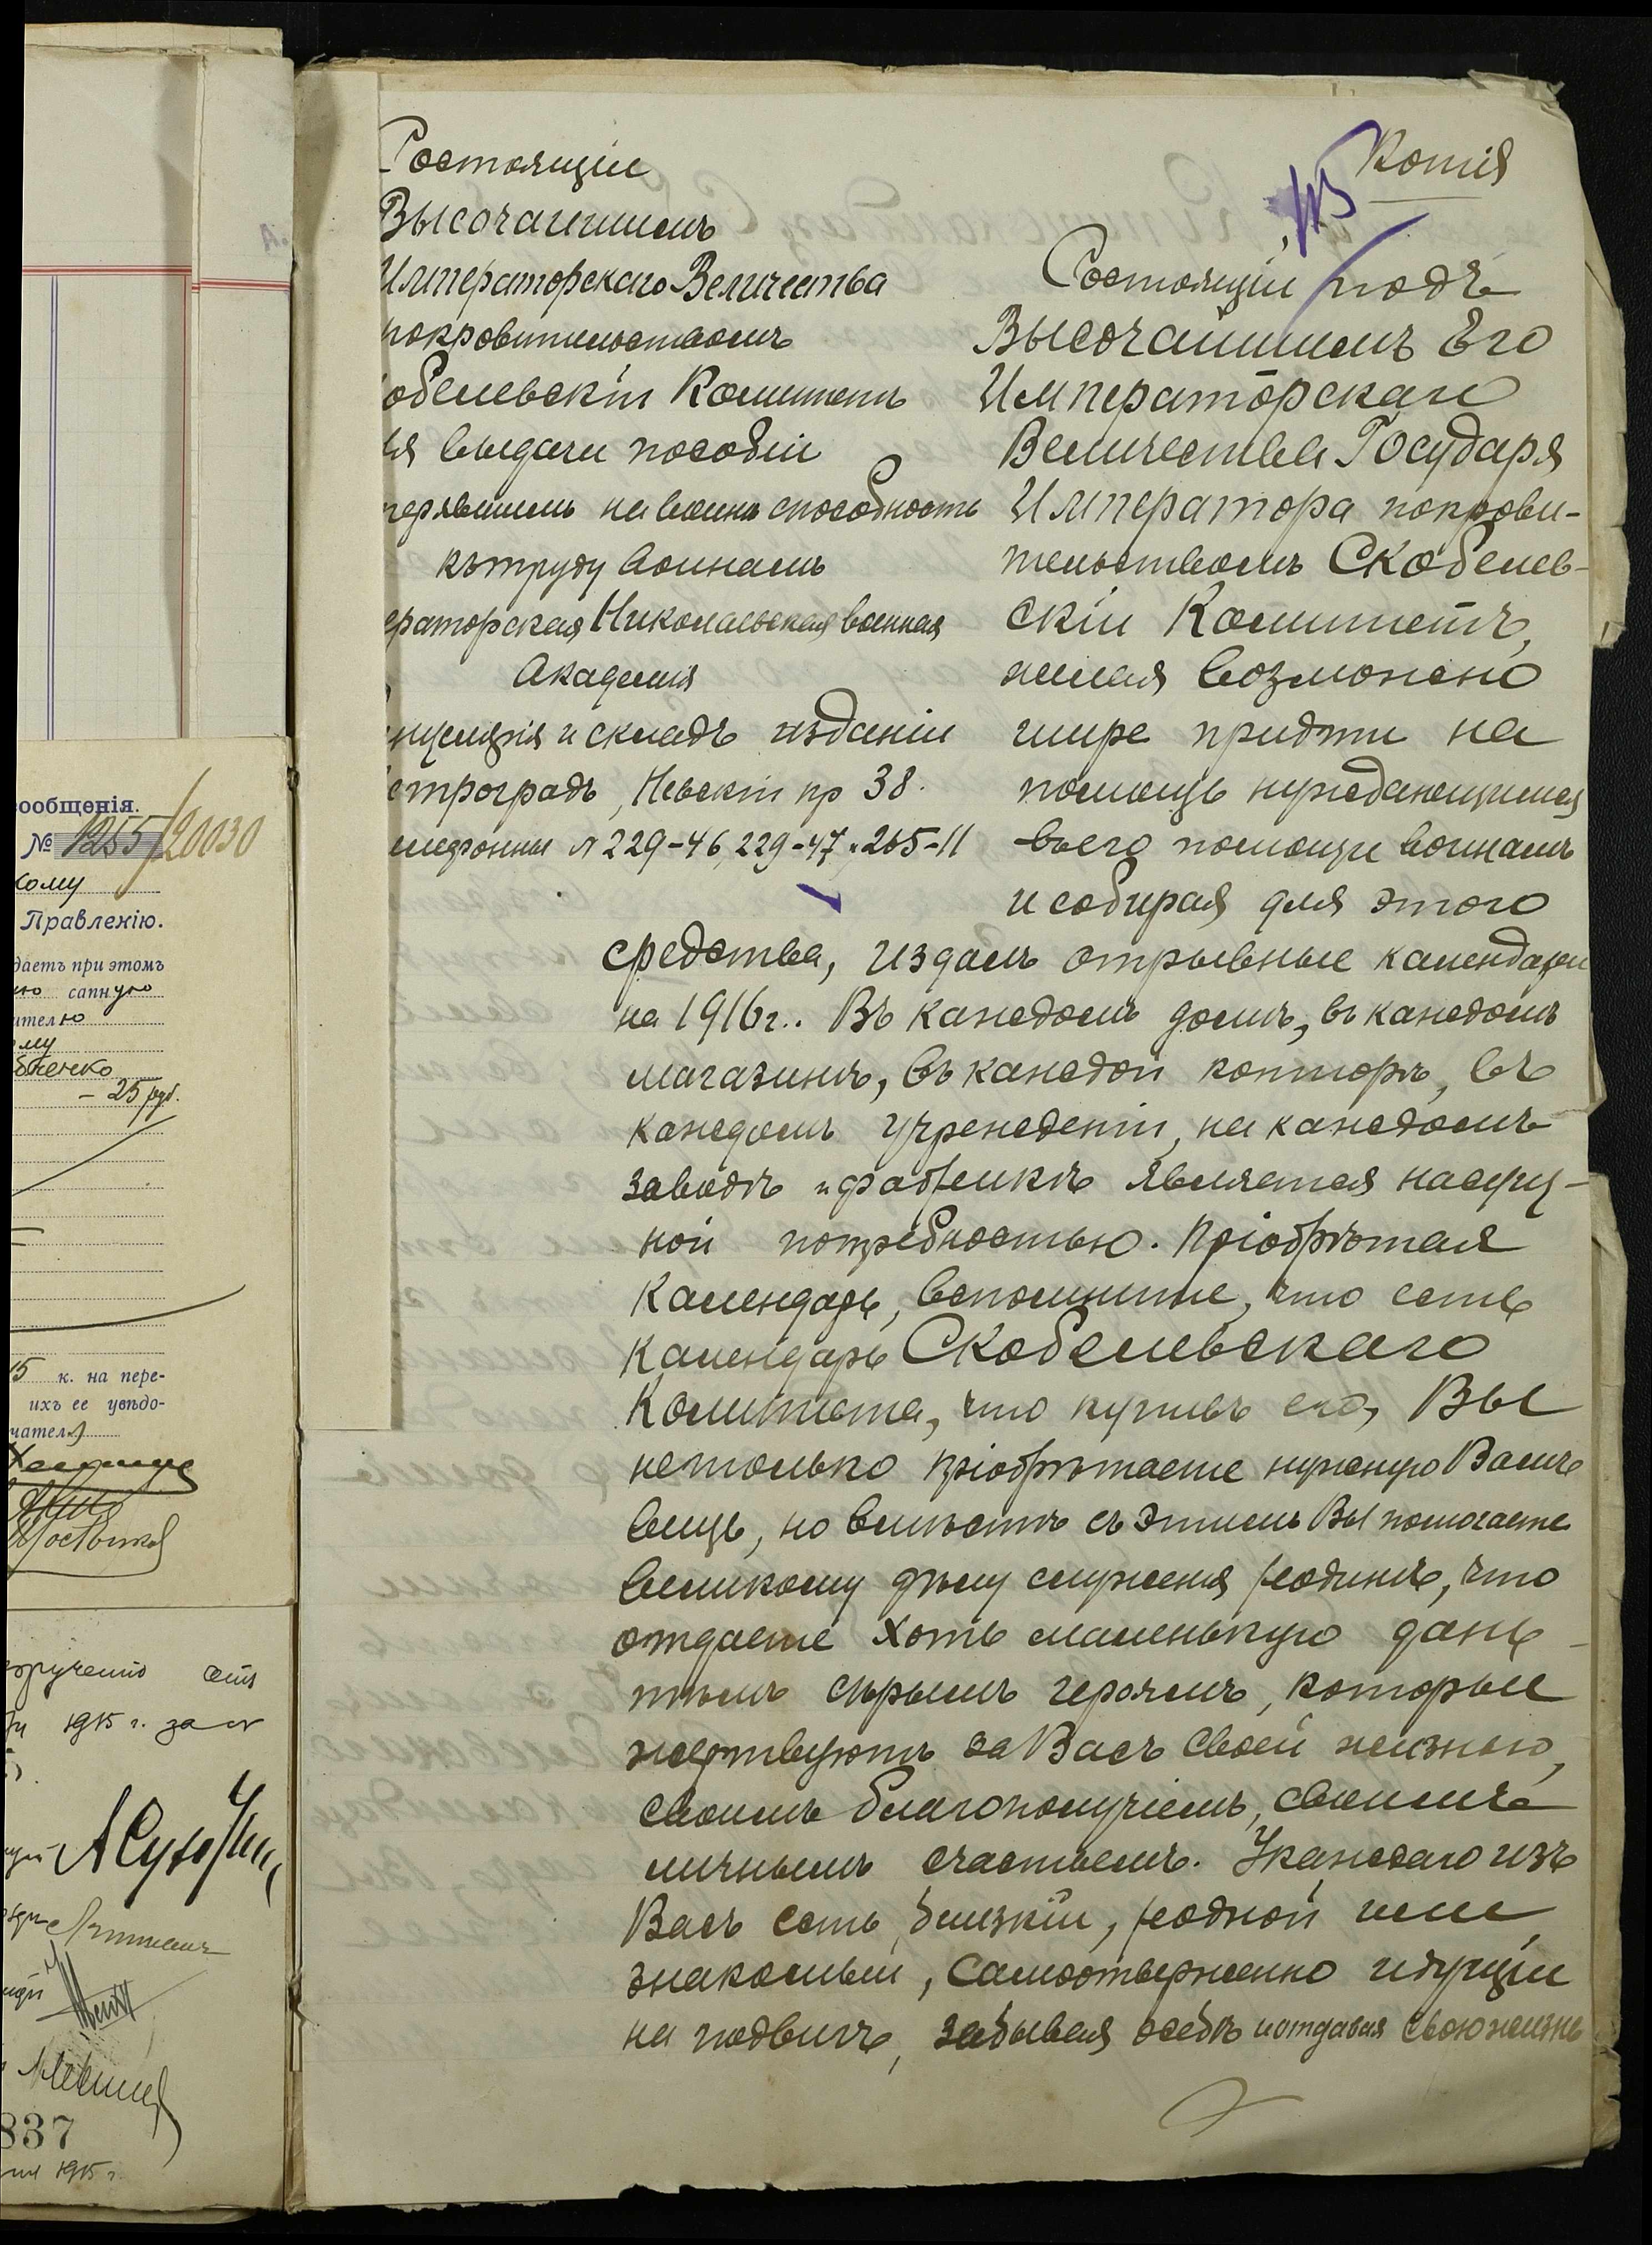 Копія
Состоящій
Высочайшимъ
Императорскаго Величества
покровительствомъ
обелевскій Комитетъ
ля выдачи пособій
терявшимъ на войнѣ способность
къ труду воинамъ
ераторская Николаевская военная
Академія
нцелярія и складъ изданій
етроградъ, Невскій пр 38.
лефоны № 229-46, 229-47 и 265-11
Состоящій подъ
Высочайшимъ Его
Императорскаго
Величества Государя
Императора покрови-
тельствомъ Скобелев-
скій Комитетъ,
желая возможно
шире придти на
помощь нуждающимся
въ его помощи воинамъ
и собирая для этого
средства, издалъ отрывные календари
на 1916 г.. Въ каждомъ домѣ, въ каждомъ
магазинѣ, въ каждой конторѣ, въ
каждомъ учрежденіи, на каждомъ
заводѣ и фабрикѣ является насущ-
ной потребностью. Пріобрѣтая
календарь, вспомните, что есть
календарь Скобелевскаго
Комитета, что купивъ его, Вы
не только пріобрѣтаете нужную Вамъ
вещь, но вмѣстѣ съ этимъ Вы помогаете
великому дѣлу служенія родинѣ, что
отдаете хоть маленькую дань
тѣмъ сѣрымъ героямъ, которые
жертвуютъ за Васъ своей жизнью,
своимъ благополучіемъ, своимъ
личнымъ счастьемъ. У каждаго изъ
Васъ есть близкій, родной или
знакомый, самоотверженно идущій
на подвигъ, забывая о себѣ и отдавая свою жизнь
ообщенія.
№ 1255/20030
кому
Правленію.
даетъ при этомъ
ую сапную
ителю
ому
бненко
— 25 руб.
15 к. на пере-
ихъ ее увѣдо-
чателя
1915 г. за №
837
1915 г.